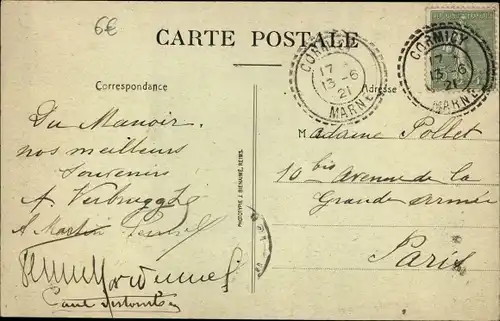 6€
CARTE POSTALE
Correspondance
Adresse
CORMICY
17
13 -6
21
MARNE
CORMICY
17
13 -6
21
MARNE
Du Manoir.
nos meilleurs
Souvenirs
A. Verbrugghe
A Martin
Madame Pollet
10 bis Avenue de la
Grande Armée
Paris
PHOTOTYPIE J. BIENAIMÉ, REIMS.